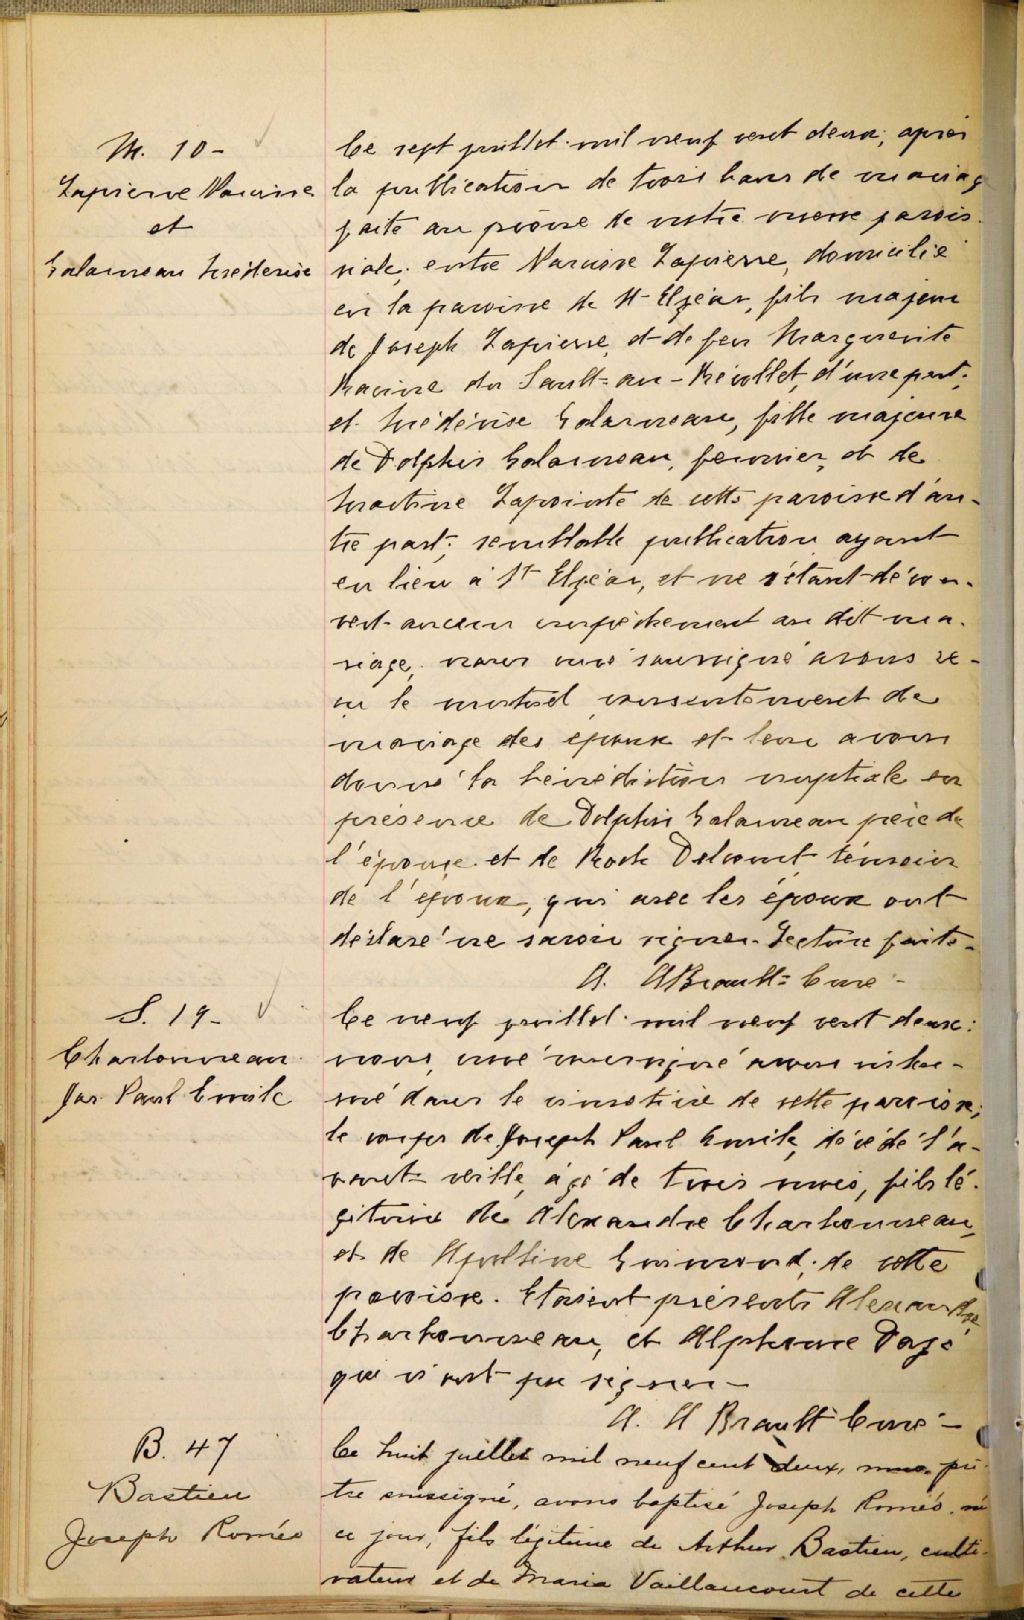 M. 10 -
Lapierre Narcisse
et
Galarneau Médérise
Ce sept juillet mil neuf cent deux; après
la publication de trois bans de mariage
faite au prône de notre messe parois-
siale, entre Narcisse Lapierre, domicilié
en la paroisse de St Elzéar, fils majeur
de Joseph Lapierre, et de feu Marguerite
Racine du Sault-au-Récollet, d'une part;
et Médérise Galarneau, fille majeure
de Dolphis Galarneau, fermier, et de
Martine Lapointe de cette paroisse d'au-
tre part; semblable publication ayant
eu lieu à St Elzéar, et ne s'étant décou-
vert aucun empêchement au dit ma-
riage, nous curé soussigné avons re-
çu le mutuel consentement de
mariage des époux et leur avons
donné la bénédiction nuptiale en
présence de Dolphis Galarneau père de
l'épouse et de Roch Delcourt témoin
de l'époux, qui avec les époux ont
déclaré ne savoir signer. Lecture faite.
A. A Brault Curé -
S. 19 -
Charbonneau
Jos. Paul Emile
Ce neuf juillet mil neuf cent deux:
nous, curé soussigné avons inhu-
mé dans le cimetière de cette paroisse;
le corps de Joseph Paul Emile, décédé l'a-
vant-veille, âgé de trois mois, fils lé-
gitime de Alexandre Charbonneau,
et de Apolline Guimond, de cette
paroisse. Etaient présents Alexandre
Charbonneau, et Alphonse
qui n'ont pu signer -
A. A Brault Curé -
B. 47
Bastien
Joseph Roméo
Ce huit juillet mil neuf cent deux, nous prê-
tre soussigné, avons baptisé Joseph Roméo, né
ce jour, fils légitime de Arthur Bastien, culti-
vateur et de Maria Vaillancourt de cette